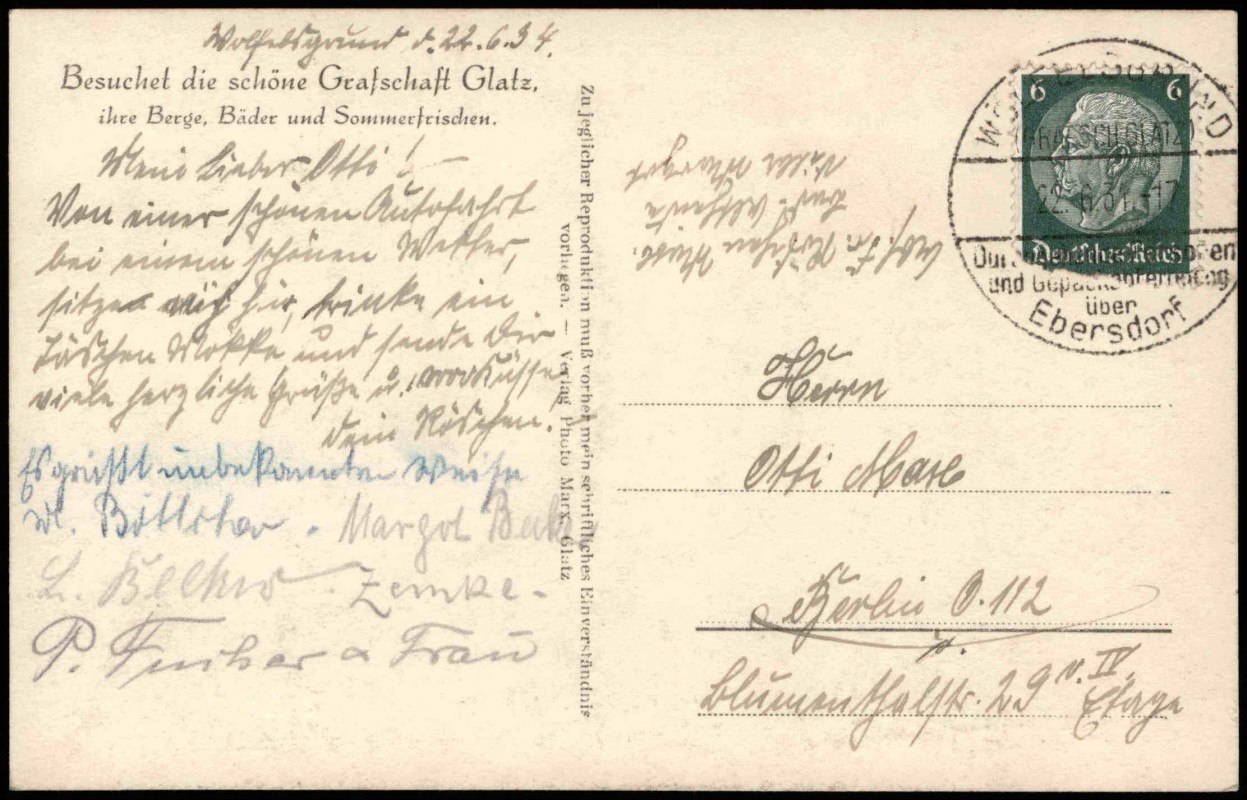 Wölfelsgrund d. 22.6.34.
Besuchet die schöne Grafschaft Glatz,
ihre Berge, Bäder und Sommerfrischen.
Mein lieber Otti! –
Von einer schönen Autofahrt
bei einem schönen Wetter
sitzen wir hier, trinke ein
Tässchen Mokka und sende Dir
viele herzliche Grüße u. 1000 Küsse
Dein Röschen.
Es grüßt unbekannten Weise
W. – Margot
L. Becker – Zemke –
P. Fischer & Frau
Zu jeglicher Reproduktion muß vorher mein schriftliches Einverständnis
vorliegen. — Verlag Photo Marx, Glatz
Abs. Fr. Röschen
Bad
Villa Margot
WÖLFELSGRUND
(GRAFSCH. GLATZ)
22.6.34.-17
und
über
Ebersdorf
6 6
Deutsches Reich
Herrn
Otti
Berlin O.112
Blumenthalstr. 29 v. IV.
Etage